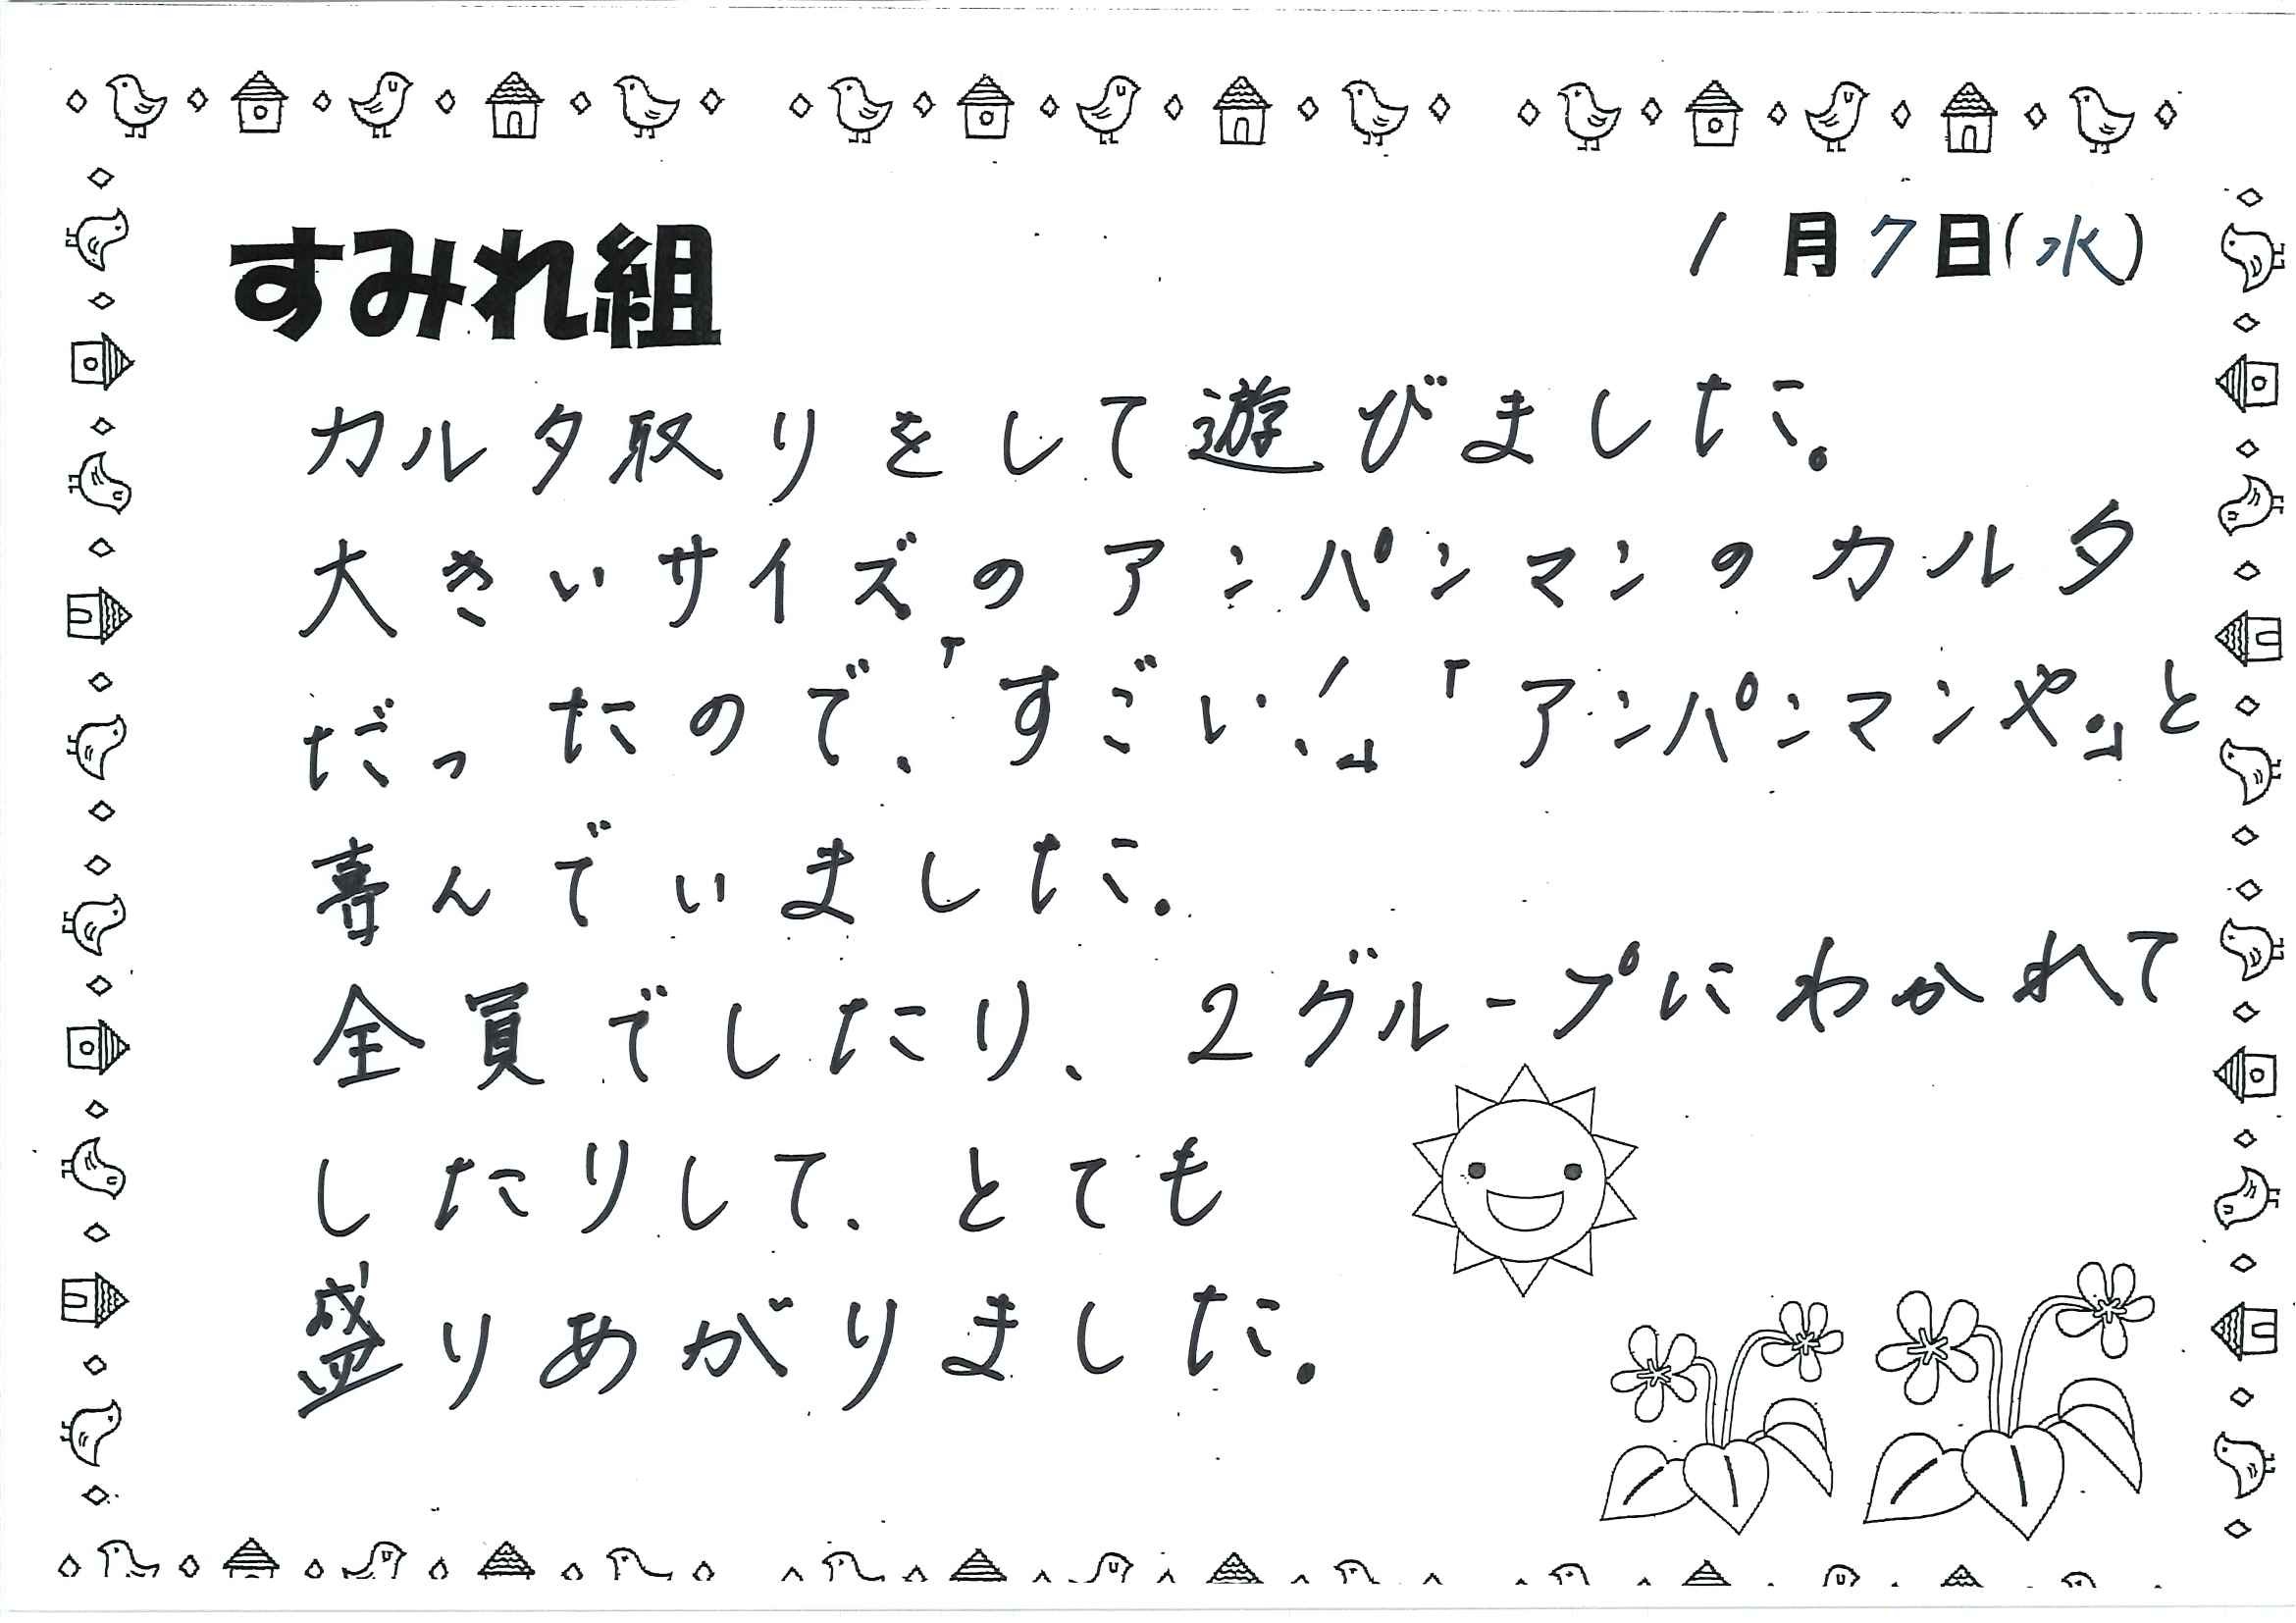 すみれ組
1月7日(水)
カルタ取りをして遊びました。
大きいサイズのアンパンマンのカルタ
だったので、「すごい!」「アンパンマンや。」と
喜んでいました。
全員でしたり、2グループにわかれて
したりして、とても
盛りあがりました。